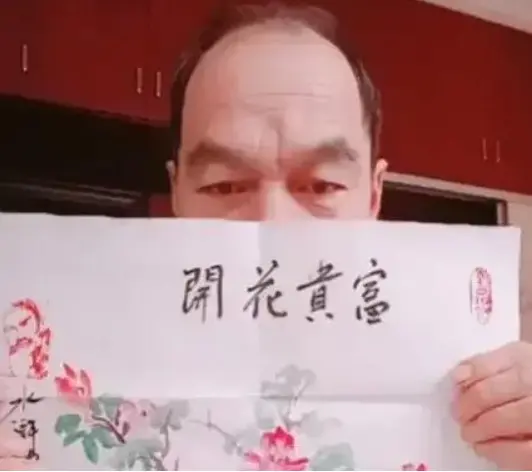 富貴花開
水